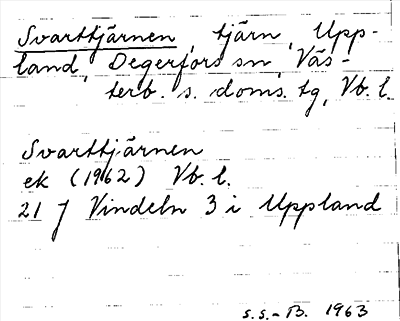 Svarttjärnen, tjärn, Upp-
land, Degerfors sn,Väs-
terb. s. doms. tg, Vb. l.
Svarttjärnen
ek (1962) Vb. l.
21 J Vindeln 3 i Uppland
S.S.-B. 1963